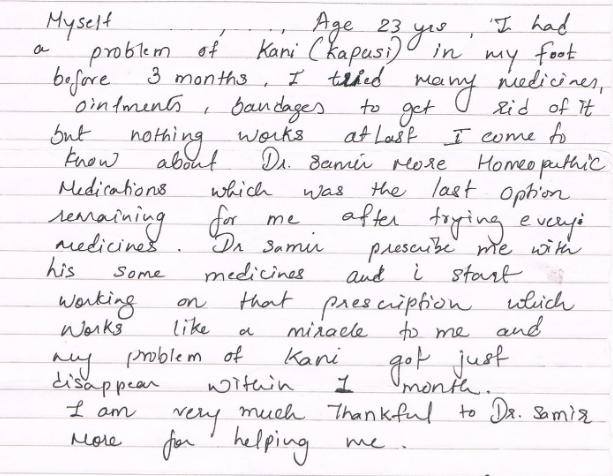 Myself . . . . , Age 23 yrs, I had
a problem of Kani (Kapasi) in my foot
before 3 months. I tried many medicines,
ointments, bandages to get rid of it
but nothing works at last I come to
know about Dr. Samir More Homeopathic
Medications which was the last option
remaining for me after trying every
medicines. Dr Samir prescribe me with
his some medicines and i start
working on that prescription which
works like a miracle to me and
my problem of Kani got just
disappear within 1 month.
I am very much Thankful to Dr. Samir
More for helping me.